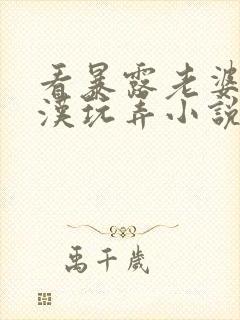 看暴露老婆
漢玩弄小說
禹千歲